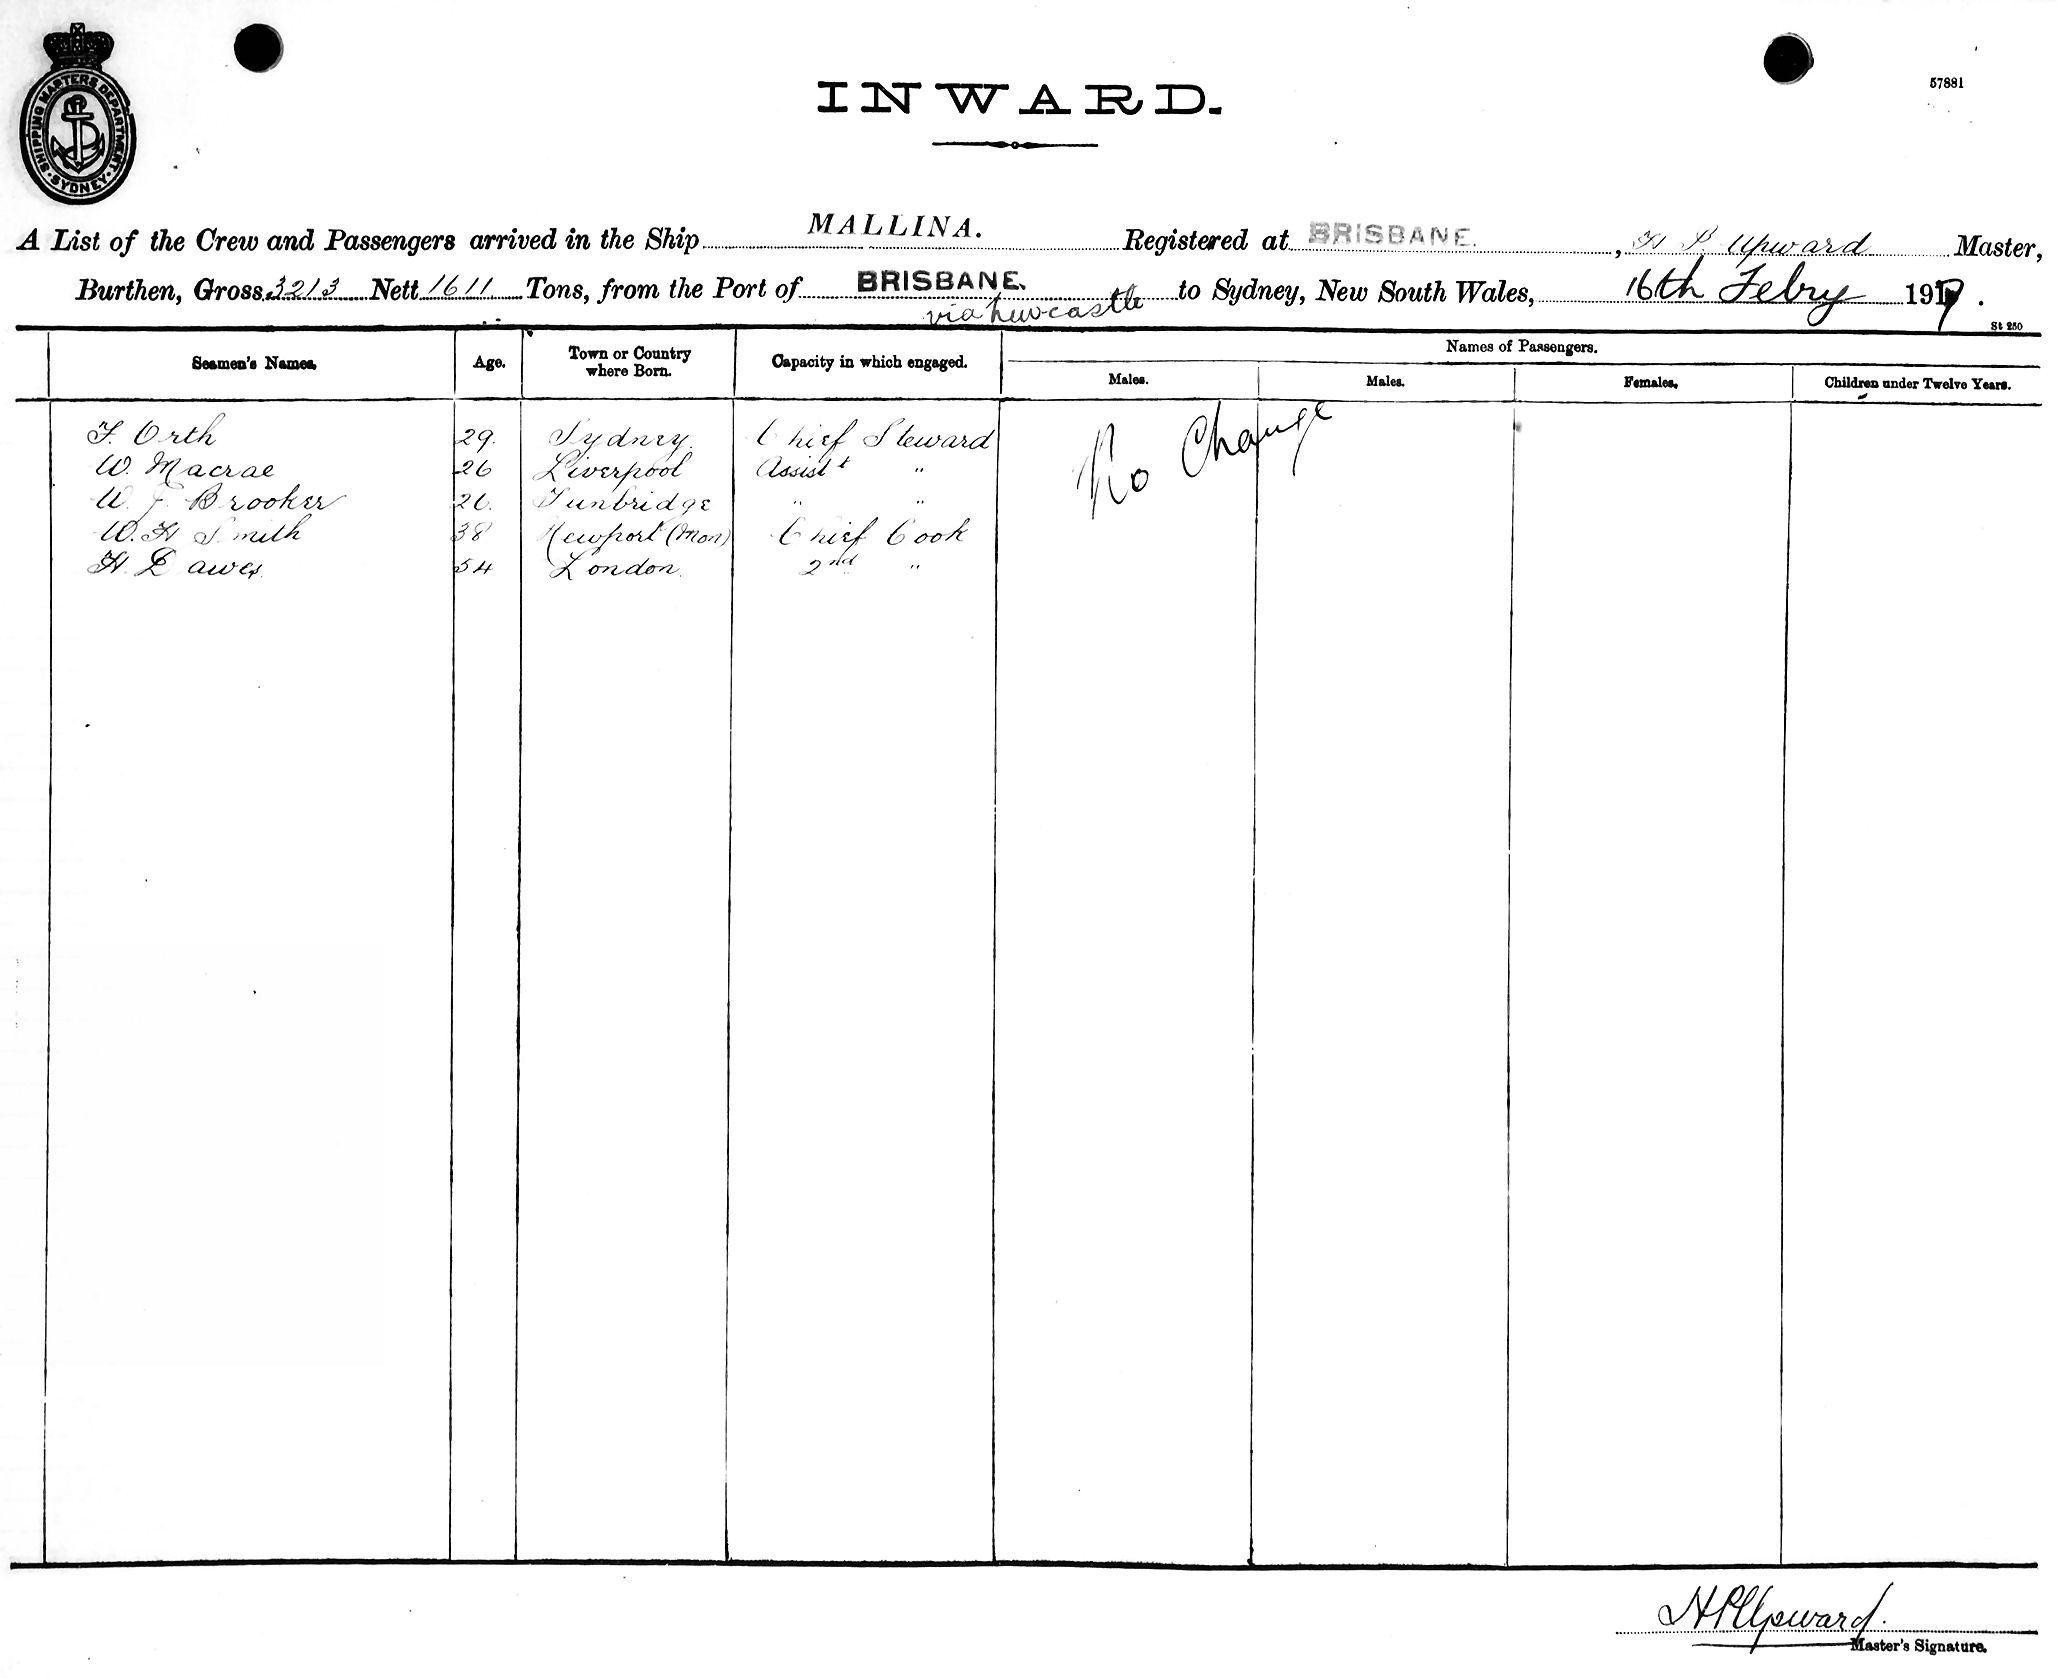 SHIPPING MASTERS DEPARTMENT · SYDNEY ·
57881
INWARD.
A List of the Crew and Passengers arrived in the Ship MALLINA. Registered at BRISBANE., H P. Upward Master,
Burthen, Gross 3213 Nett 1611 Tons, from the Port of BRISBANE. to Sydney, New South Wales, 16th Febry 1917.
via Newcastle
St 250
Seamen's Names. Age. Town or Country where Born. Capacity in which engaged. Names of Passengers.
Males. Males. Females. Children under Twelve Years.
F. Orth 29. Sydney. Chief Steward
No Change
W. Macrae 26 Liverpool Assist "
W F Brooker 26. Tunbridge " "
W. H Smith 38 Newport (Mon) Chief Cook
H. Dawes. 54 London. 2nd "
H P Upward.
Master's Signature.